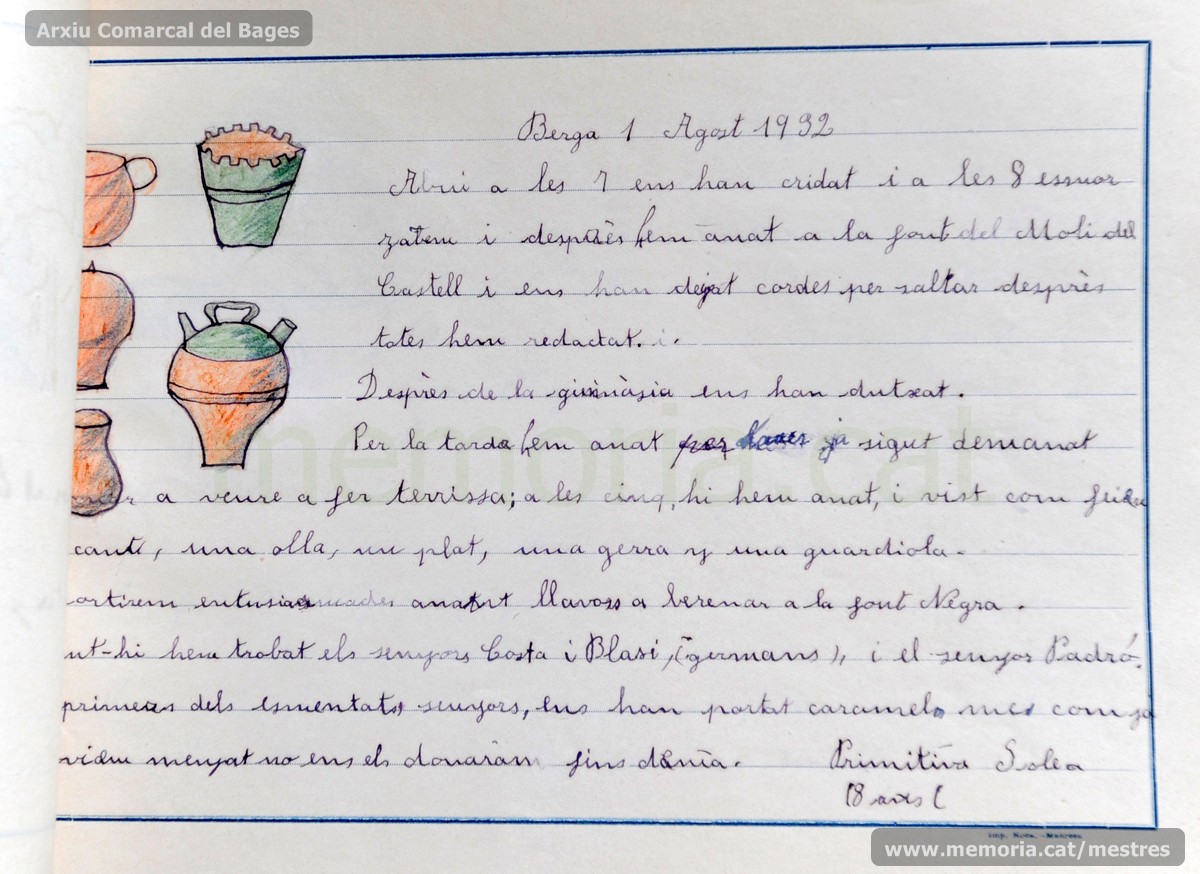 Arxiu Comarcal del Bages
Berga 1 Agost 1932
Abui a les 7 ens han cridat i a les 8 esmor
zatem i desprès hem anat a la font del Moli del
Castell i ens han dejat cordes per saltar desprès
totes hem redactat. i.
Desprès de la gimnàsia ens han dutxat.
Per la tarda hem anat per ja sigut demanat
r a veure a fer terrissa; a les cinq, hi hem anat, i vist com feien
canti, una olla, un plat, una gerra y una guardiola.
ortirem entusiasmades anant llavors a berenar a la font Negra.
nt-hi hem trobat els senyors Costa i Blasi, (germans), i el senyor Padró.
primers dels esmentats senyors, ens han portat caramels mes com ja
viem menjat no ens els donaràn fins demà. Primitiva Solea
(8 anys (
memoria.cat
Imp. Nova. - Manresa
www.memoria.cat/mestres